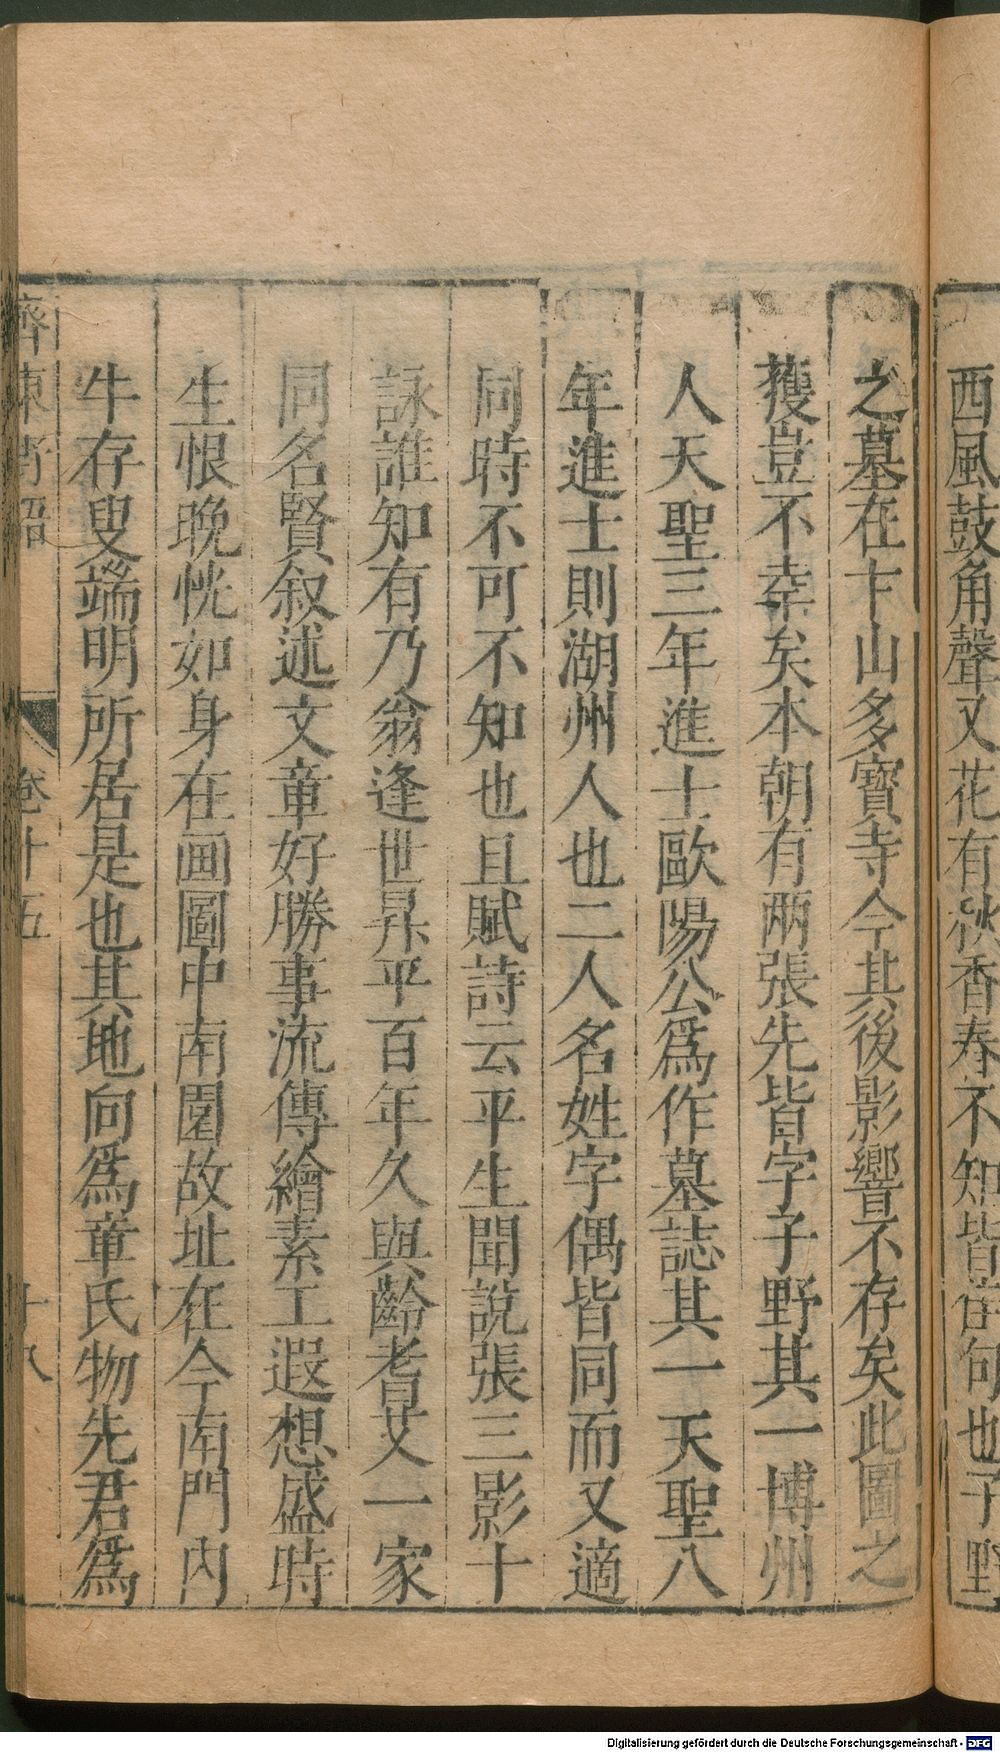 西風鼓角聲又花有秋香春不知皆茁句也子野
之墓在卞山多寶寺今其後影響不存矣此圖之
獲豈不幸矣本朝有兩張先皆字子野其一博州
人天聖三年進士歐陽公爲作墓誌其一天聖八
年進士則湖州人也二人名姓字偶皆同而又適
同時不可不知也且賦詩云平生聞說張三影十
詠誰知有乃翁逢世昇平百年久與齡耆艾一家
同名賢叙述文章好勝事流傳繪素工遐想盛時
生恨晚恍如身在画圖中南園故址在今南門内
牛存叟端明所居是也其地向爲章氏物先君爲
齊東野語 卷十五 十八
Digitalisierung gefördert durch die Deutsche Forschungsgemeinschaft - DFG